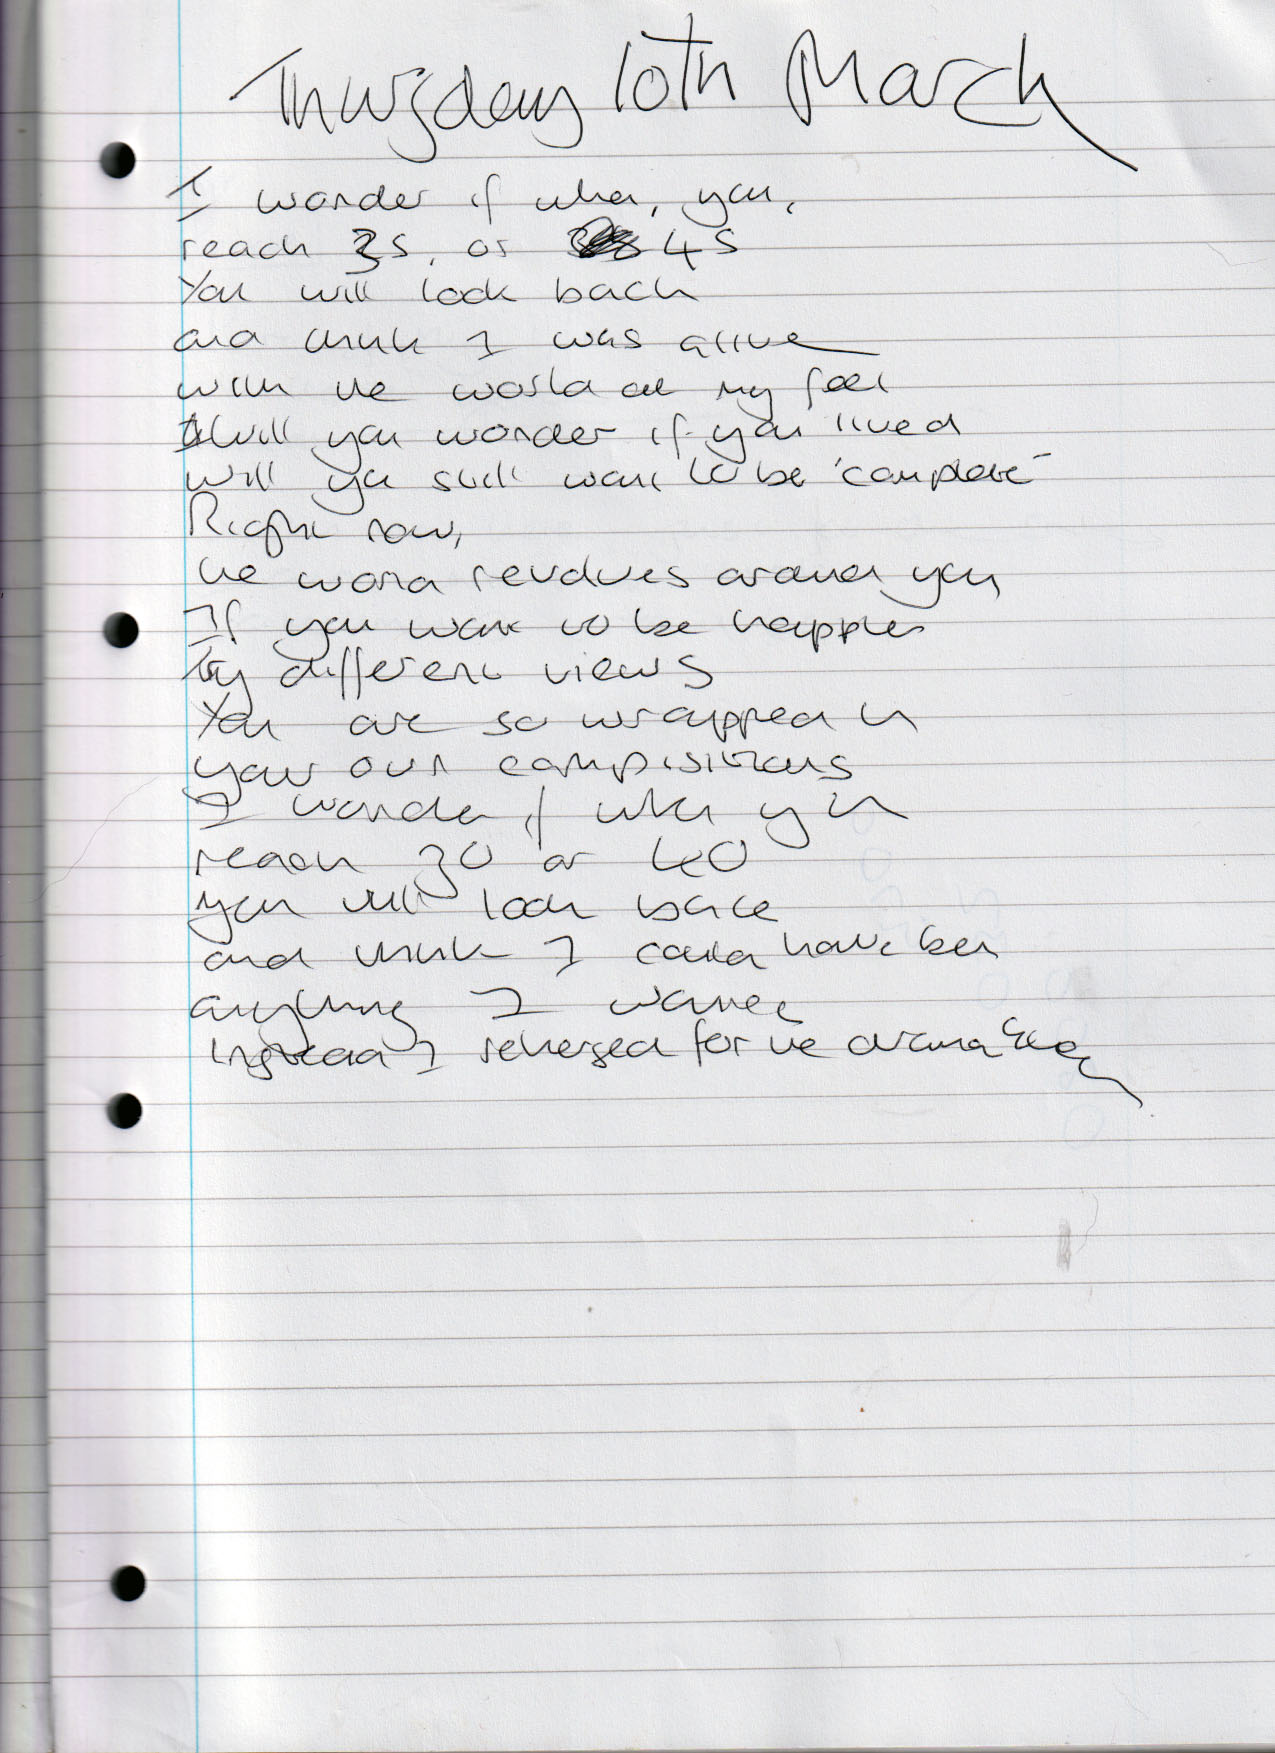 Thursday 10th March
I wonder if when, you,
reach 35, or 45
You will look back
and think I was alive
with the world at my feet
Will you wonder if you lived
will you still want to be 'complete'
Right now,
the world revolves around you
If you want to be happier
try different views
You are so wrapped in
your own compisitions
I wonder if when you
reach 30 or 40
you will look back
and think I could have been
anything I wanted
Instead I rehersed for the drama